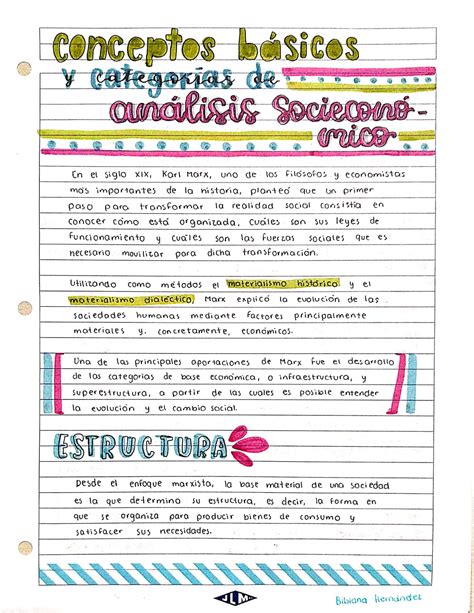 conceptos básicos
y categorías de
análisis socieconó-
mico
En el siglo XIX, Karl Marx, uno de los filósofos y economistas
más importantes de la historia, planteó que un primer
paso para transformar la realidad social consistía en
conocer cómo está organizada, cuáles son sus leyes de
funcionamiento y cuáles son las fuerzas sociales que es
necesario movilizar para dicha transformación.
Utilizando como métodos el materialismo histórico y el
materialismo dialéctico, Marx explicó la evolución de las
sociedades humanas mediante factores principalmente
materiales y, concretamente, económicos.
Una de las principales aportaciones de Marx fue el desarrollo
de las categorías de base económica, o infraestructura, y
superestructura, a partir de las cuales es posible entender
la evolución y el cambio social.
ESTRUCTURA
Desde el enfoque marxista, la base material de una sociedad
es la que determina su estructura, es decir, la forma en
que se organiza para producir bienes de consumo y
satisfacer sus necesidades.
JLM
Bibiana Hernández